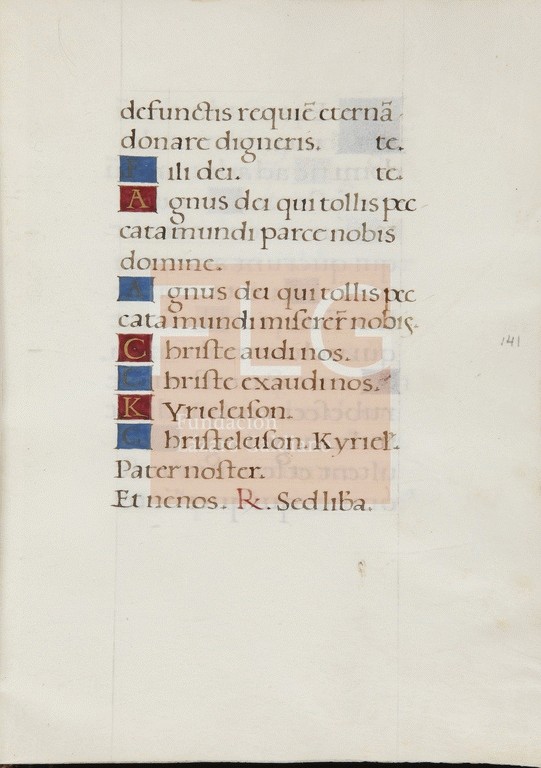 defunctis requiē eternā
donare digneris. te.
Fili dei. te.
Agnus dei qui tollis pec
cata mundi parce nobis
domine.
Agnus dei qui tollis pec
cata mundi miserer̄ nobis.
Christe audi nos.
Christe exaudi nos.
KYrieleison.
Christeleison. Kyriel.
Pater noster.
Et ne nos. ℟. Sed liba.
141
FLG
Fundación